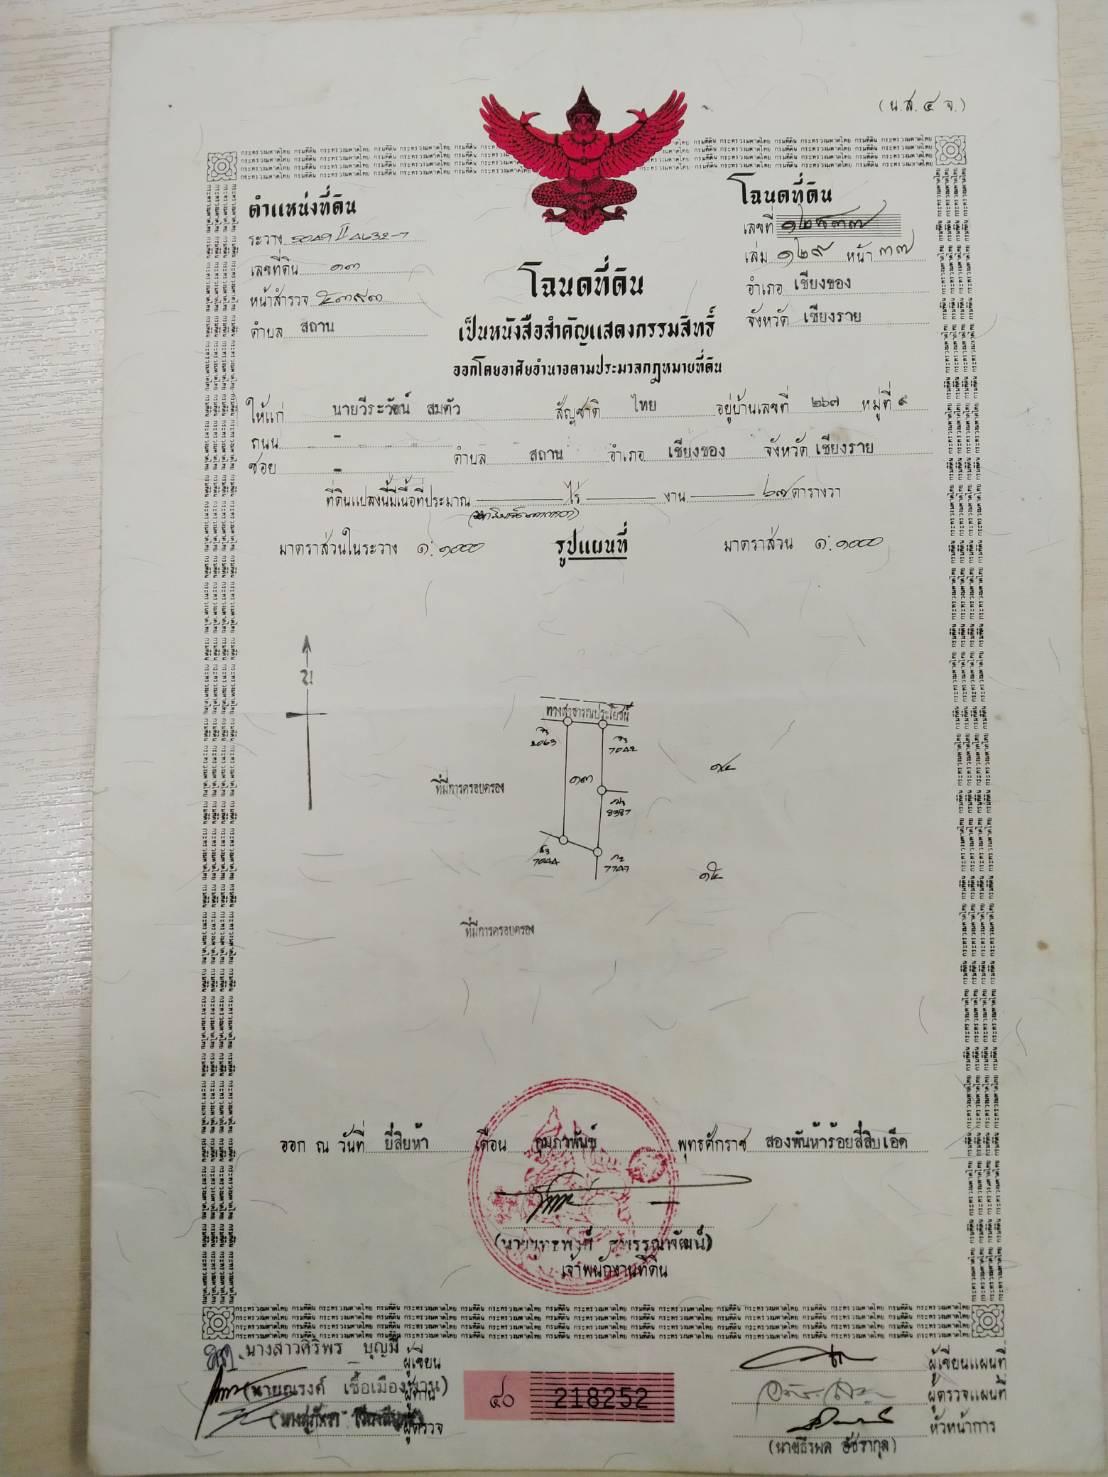 (น.ส. ๔ จ.)
ตำแหน่งที่ดิน
ระวาง
เลขที่ดิน ๑๓
หน้าสำรวจ
ตำบล สถาน
โฉนดที่ดิน
เลขที่
เล่ม ๑๒๙ หน้า ๓๗
อำเภอ เชียงของ
จังหวัด เชียงราย
โฉนดที่ดิน
เป็นหนังสือสำคัญแสดงกรรมสิทธิ์
ออกโดยอาศัยอำนาจตามประมวลกฎหมายที่ดิน
ให้แก่ นายวีระวัฒน์ สมตัว สัญชาติ ไทย อยู่บ้านเลขที่ ๒๖๗ หมู่ที่ ๙
ถนน -
ซอย - ตำบล สถาน อำเภอ เชียงของ จังหวัด เชียงราย
ที่ดินแปลงนี้มีเนื้อที่ประมาณ ไร่ งาน ๖๗ ตารางวา
มาตราส่วนในระวาง ๑:๑๐๐๐ รูปแผนที่ มาตราส่วน ๑:๑๐๐๐
น
ทางสาธารณประโยชน์
๑๓
๑๔
ที่มีการครอบครอง
๑๕
ที่มีการครอบครอง
ออก ณ วันที่ ยี่สิบห้า เดือน กุมภาพันธ์ พุทธศักราช สองพันห้าร้อยสี่สิบเอ็ด
เจ้าพนักงานที่ดิน
นางสาวศิริพร บุญมี ผู้เขียน
(นายณรงค์ เชื้อเมืองพาน) ผู้ทาน
ผู้ตรวจ
๔๐ 218252
ผู้เขียนแผนที่
ผู้ตรวจแผนที่
หัวหน้าการ
กระทรวงมหาดไทย กรมที่ดิน